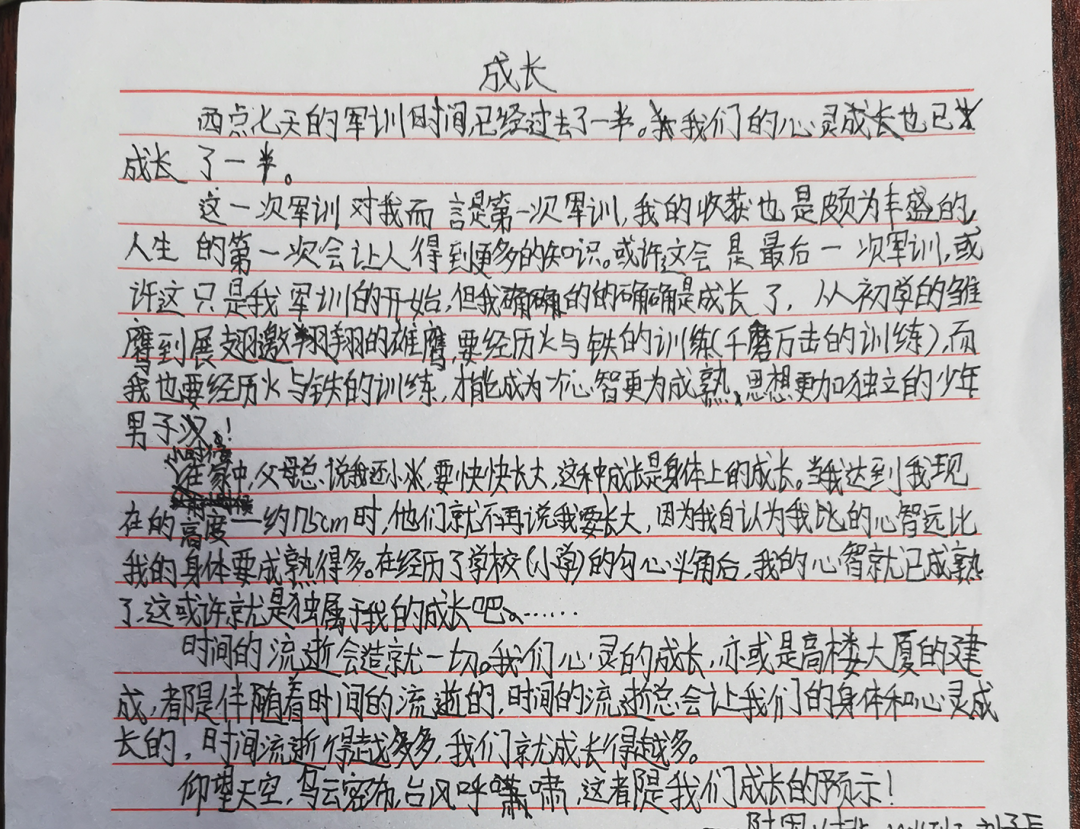 成长
西点七天的军训时间,已经过去了一半。我们的心灵成长也已
成长了一半。
这一次军训对我而言是第一次军训,我的收获也是颇为丰盛的,
人生的第一次会让人得到更多的知识。或许这会是最后一次军训,或
许这只是我军训的开始,但我确确的的确确是成长了,从初学的雏
鹰到展翅遨翔翔的雄鹰,要经历火与铁的训练(千磨万击的训练),而
我也要经历火与铁的训练,才能成为心智更为成熟、思想更加独立的少年
男子汉!
小时候
在家中,父母总说我还小,要快快长大,这种成长是身体上的成长。当我达到我现
在的高度一约175cm时,他们就不再说我要长大,因为我自认为我比的心智远比
我的身体要成熟得多。在经历了学校(小学)的勾心斗角后,我的心智就已成熟
了,这或许就是独属于我的成长吧。……
时间的流逝会造就一切。我们心灵的成长,亦或是高楼大厦的建
成,都是伴随着时间的流逝的,时间的流逝总会让我们的身体和心灵成
长的,时间流逝得越多多,我们就成长得越多。
仰望天空,乌云密布,台风呼啸啸,这都是我们成长的预示!